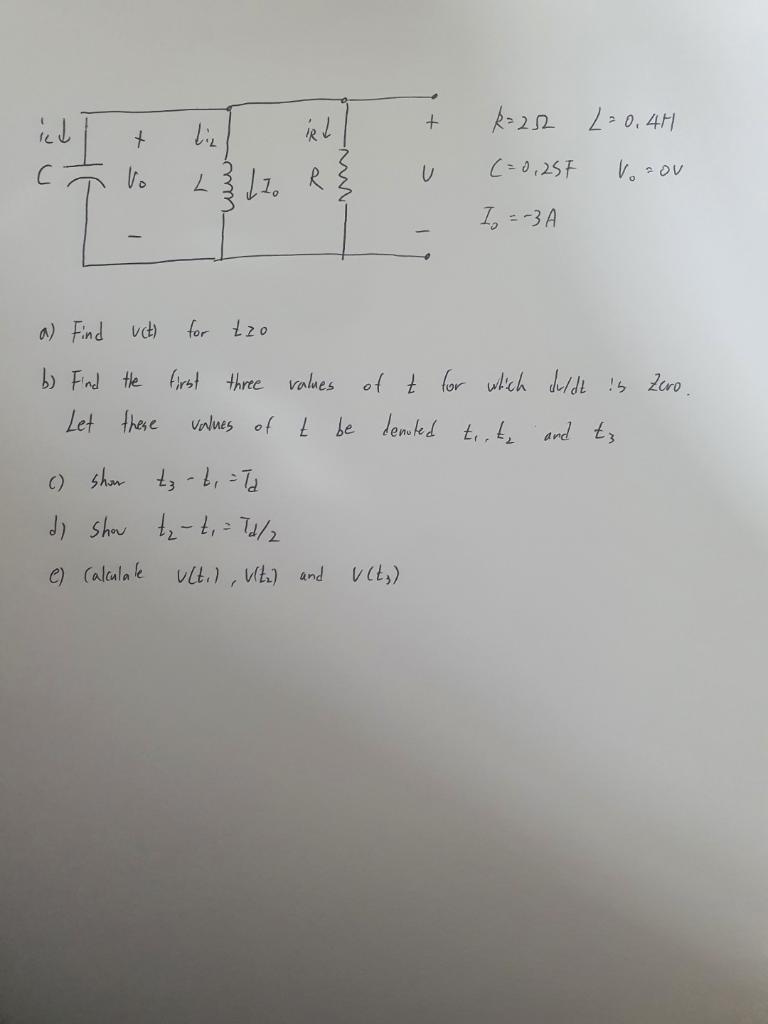 ic↓ + ↓iL iR↓ + R=2Ω L=0.4H
C V₀ L ↓I₀ R v C=0.25F V₀=0V
− − I₀=-3A
a) Find v(t) for t≥0
b) Find the first three values of t for which dv/dt is zero.
Let these values of t be denoted t₁, t₂ and t₃
c) show t₃-t₁=Td
d) show t₂-t₁=Td/2
e) Calculate v(t₁), v(t₂) and v(t₃)